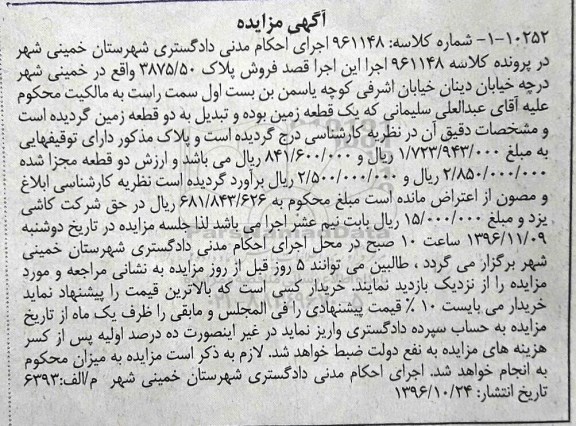 آگهی مزایده
۱-۱۰۲۵۲- شماره کلاسه: ۹۶۱۱۴۸ اجرای احکام مدنی دادگستری شهرستان خمینی شهر
در پرونده کلاسه ۹۶۱۱۴۸ اجرا این اجرا قصد فروش پلاک ۳۸۷۵/۵۰ واقع در خمینی شهر
درچه خیابان دینان خیابان اشرفی کوچه یاسمن بن بست اول سمت راست به مالکیت محکوم
علیه آقای عبدالعلی سلیمانی که یک قطعه زمین بوده و تبدیل به دو قطعه زمین گردیده است
و مشخصات دقیق آن در نظریه کارشناسی درج گردیده است و پلاک مذکور دارای توقیفهایی
به مبلغ ۱/۷۲۳/۹۴۳/۰۰۰ ریال و ۸۴۱/۶۰۰/۰۰۰ ریال می باشد و ارزش دو قطعه مجزا شده
۲/۸۵۰/۰۰۰/۰۰۰ ریال و ۲/۵۰۰/۰۰۰/۰۰۰ ریال برآورد گردیده است نظریه کارشناسی ابلاغ
و مصون از اعتراض مانده است مبلغ محکوم به ۶۸۱/۸۴۳/۶۲۶ ریال در حق شرکت کاشی
یزد و مبلغ ۱۵/۰۰۰/۰۰۰ ریال بابت نیم عشر اجرا می باشد لذا جلسه مزایده در تاریخ دوشنبه
۱۳۹۶/۱۱/۰۹ ساعت ۱۰ صبح در محل اجرای احکام مدنی دادگستری شهرستان خمینی
شهر برگزار می گردد ، طالبین می توانند ۵ روز قبل از روز مزایده به نشانی مراجعه و مورد
مزایده را از نزدیک بازدید نمایند. خریدار کسی است که بالاترین قیمت را پیشنهاد نماید
خریدار می بایست ۱۰ ٪ قیمت پیشنهادی را فی المجلس و مابقی را ظرف یک ماه از تاریخ
مزایده به حساب سپرده دادگستری واریز نماید در غیر اینصورت ده درصد اولیه پس از کسر
هزینه های مزایده به نفع دولت ضبط خواهد شد. لازم به ذکر است مزایده به میزان محکوم
به انجام خواهد شد. اجرای احکام مدنی دادگستری شهرستان خمینی شهر م/الف:۶۳۹۳
تاریخ انتشار: ۱۳۹۶/۱۰/۲۴